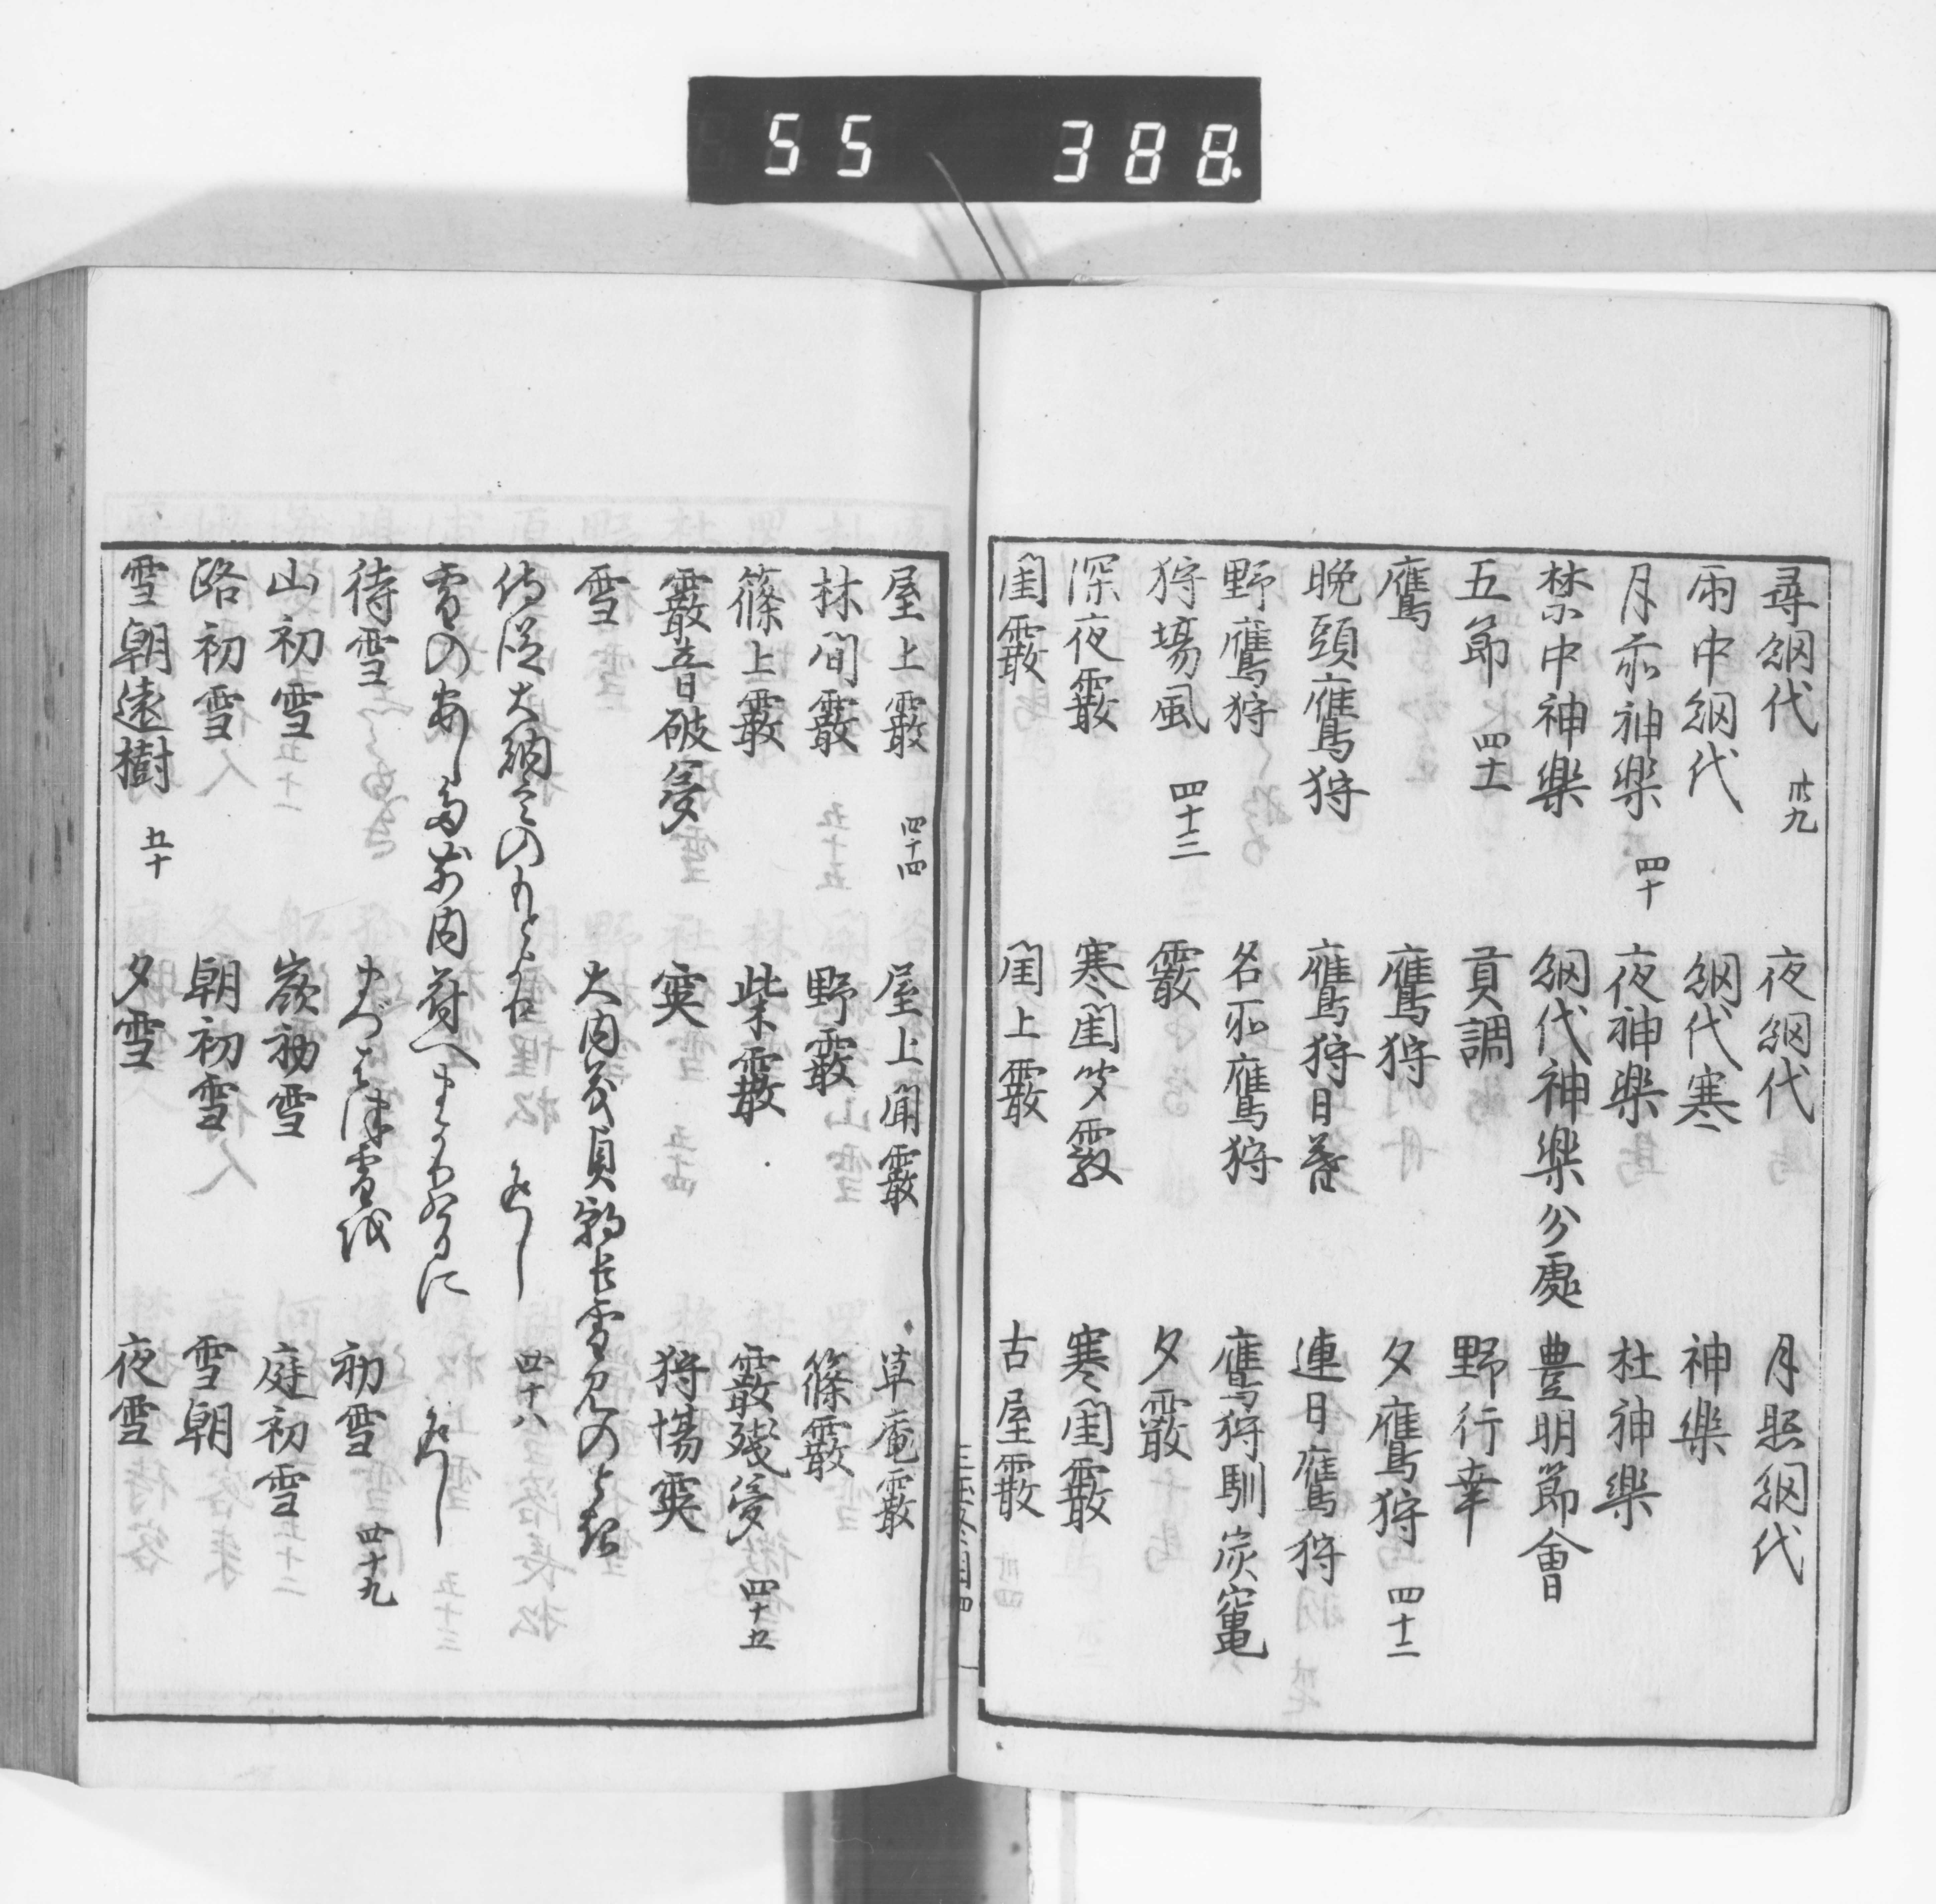 55 388
尋網代 卅九 夜網代 月照網代
雨中網代 網代寒 神樂
月前神樂 四十 夜神樂 杜神樂
禁中神樂 網代神樂分處 豊明節會
五節 四十一 貢調 野行幸
鷹 鷹狩 夕鷹狩 四十二
晩頭鷹狩 鷹狩日暮 連日鷹狩
野鷹狩 名所鷹狩 鷹狩馴炭竃
狩場風 四十三 霰 夕霰
深夜霰 寒閨夕霰 寒閨霰
閨霰 閨上霰 古屋霰
屋上霰 四十四 屋上聞霰 草庵霰
林間霰 野霰 篠霰
篠上霰 柴霰 霰残夢 四十五
霰音破夢 霙 狩場霙
雪 大内 雪見の
侍従大納言のもとより 四十八
雪の 内
待雪 まづさく雪を 初雪 四十九
山初雪 嶺初雪 庭初雪
路初雪 朝初雪 雪朝
雪朝遠樹 五十 夕雪 夜雪